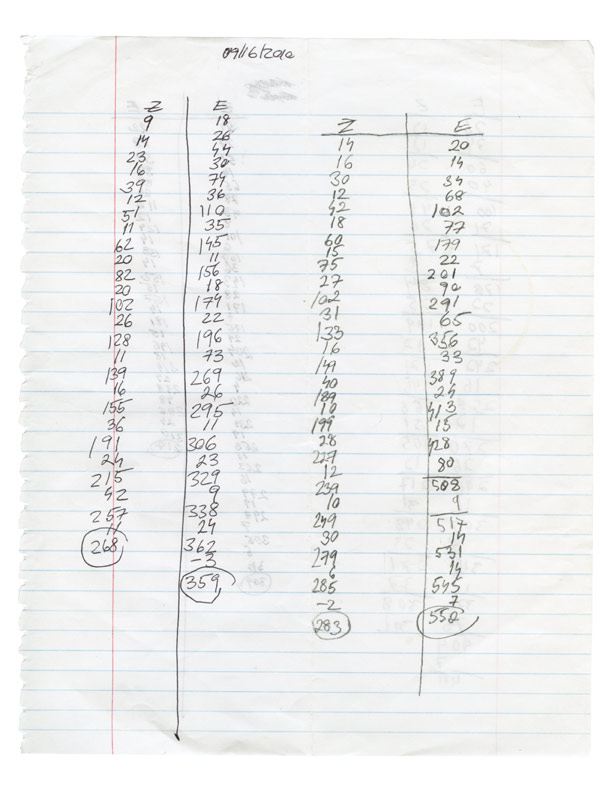 09/16/2010
Z E
9 18
14 26
23 44
16 30
39 74
12 36
51 110
11 35
62 145
20 11
82 156
20 18
102 174
26 22
128 196
11 73
139 269
16 26
155 295
36 11
191 306
24 23
215 329
42 9
257 338
11 24
268 362
-3
359
Z E
14 20
16 14
30 34
12 68
42 102
18 77
60 179
15 22
75 201
27 90
102 291
31 65
133 356
16 33
149 389
40 24
189 413
10 15
199 428
28 80
227 508
12 9
239 517
10 14
249 531
30 14
279 545
6 7
285 550
-2
283